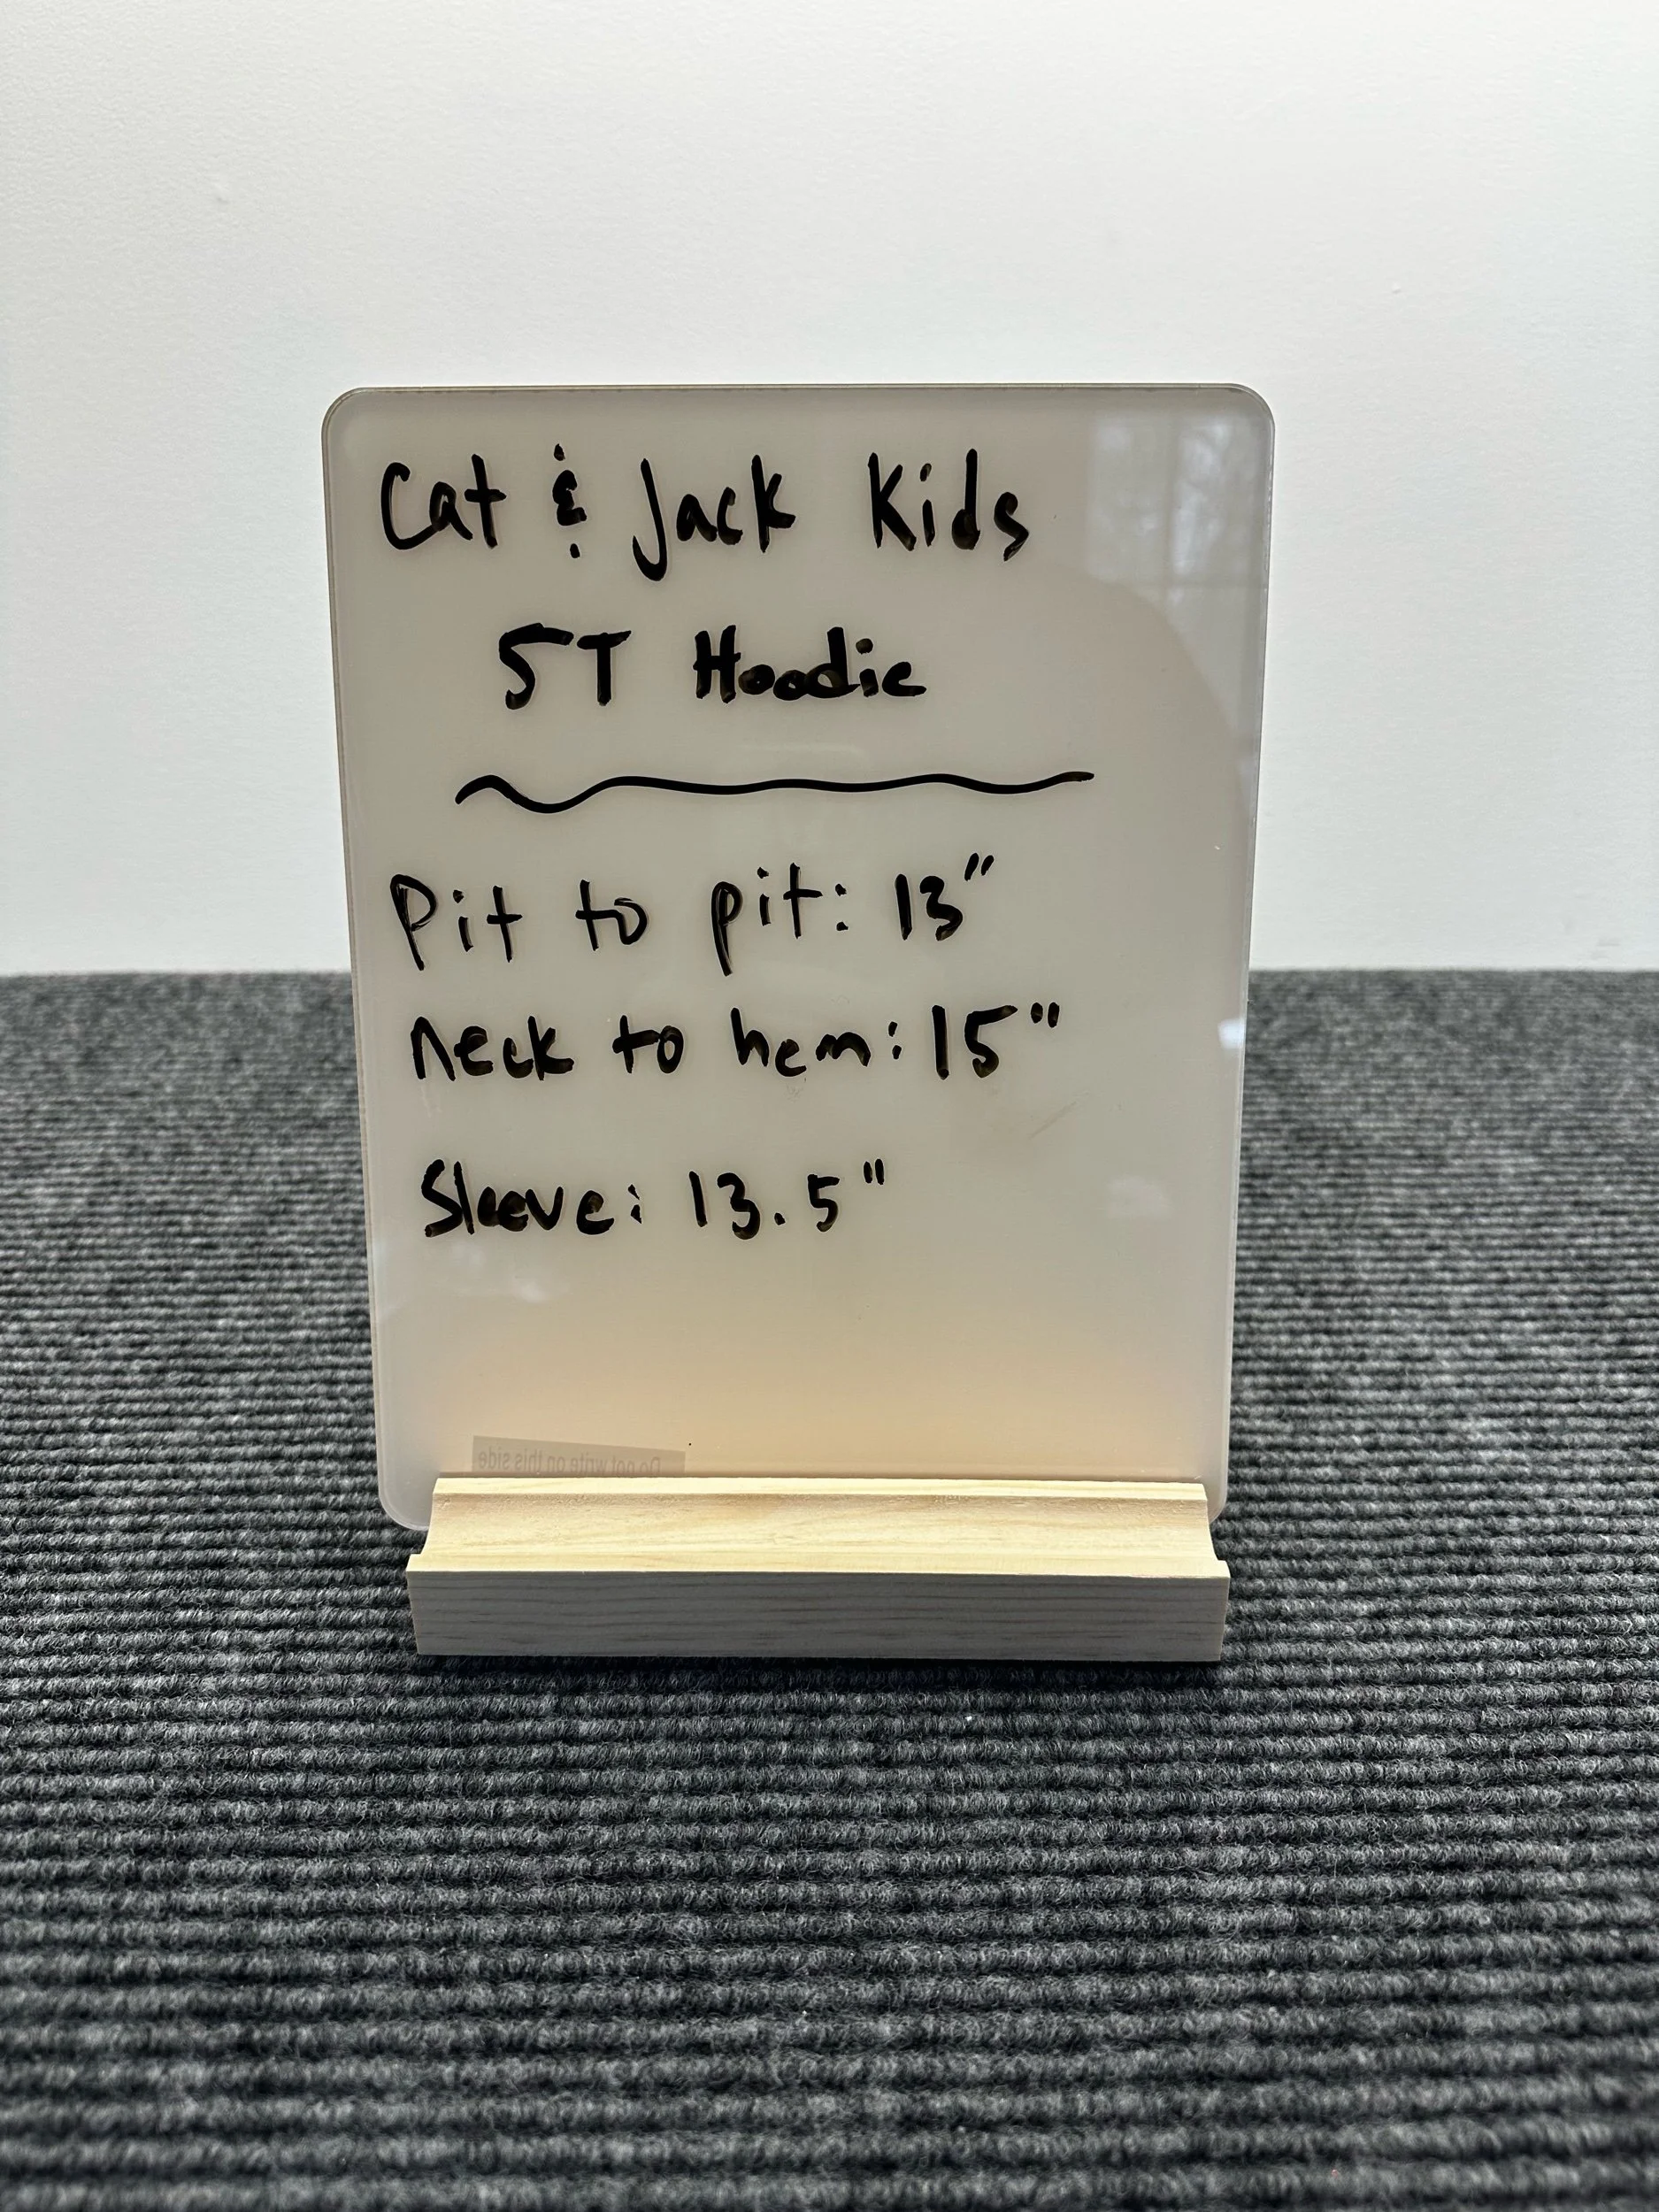 Cat & Jack Kids
5T Hoodie
Pit to pit: 13"
neck to hem: 15"
Sleeve: 13.5"
Do not write on this side